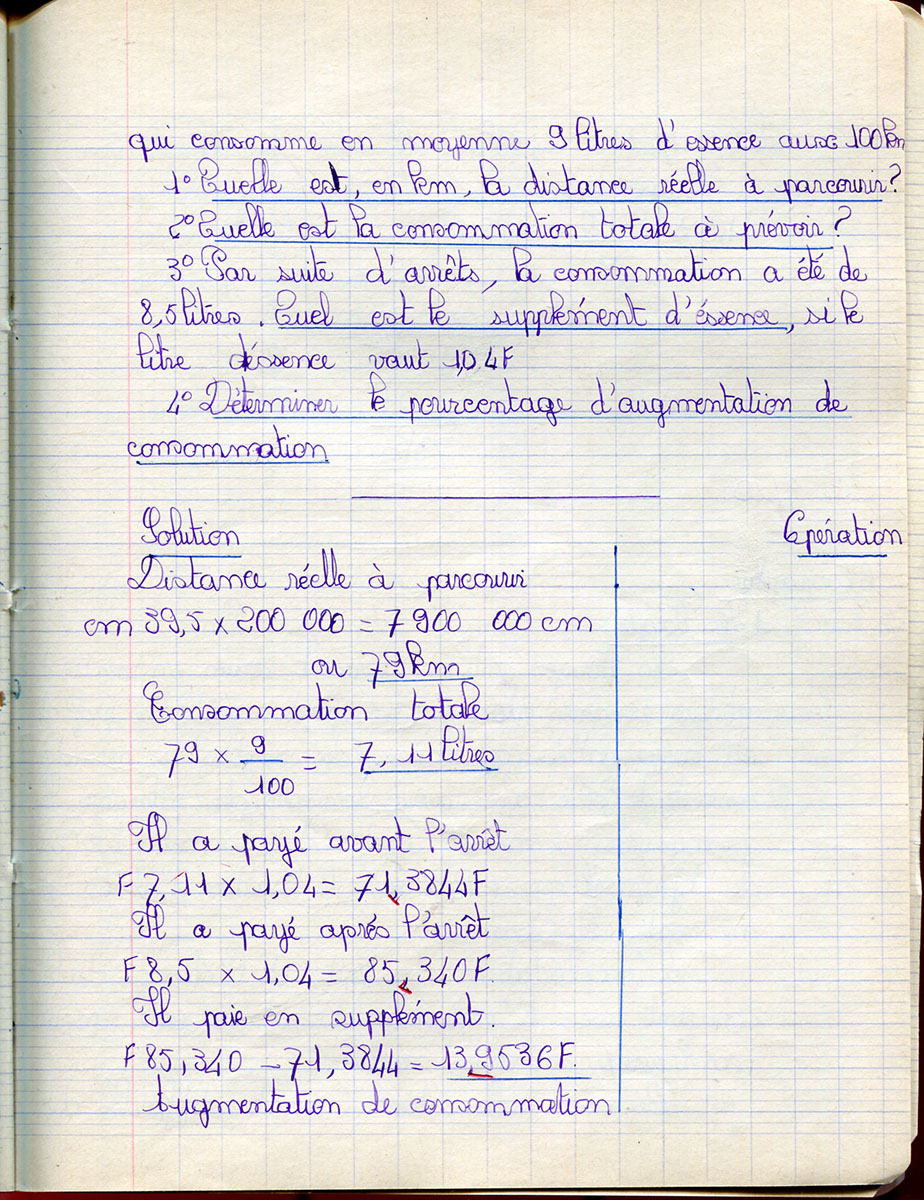 qui consomme en moyenne 9 litres d'essence aux 100 km
1° Quelle est, en km, la distance réelle à parcourir ?
2° Quelle est la consommation totale à prévoir ?
3° Par suite d'arrêts, la consommation a été de
8,5 litres. Quel est le supplément d'éssence, si le
litre d'éssence vaut 1,04F
4° Déterminer le pourcentage d'augmentation de
consommation
Solution
Opération
Distance réelle à parcourir
cm 39,5 x 200 000 = 7 900 000 cm
ou 79km
Consommation totale
79 x 9/100 = 7,11 litres
Il a payé avant l'arrêt
F 7,11 x 1,04 = 71,3844F
Il a payé aprés l'arrêt
F 8,5 x 1,04 = 85,340F.
Il paie en supplément.
F 85,340 - 71,3844 = 13,9536F.
Augmentation de consommation